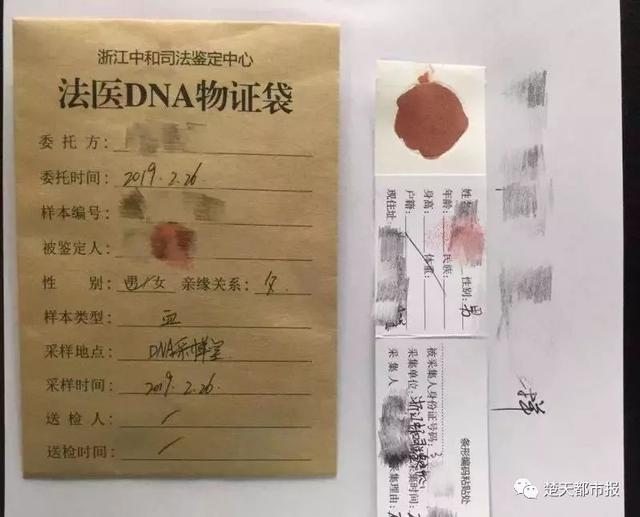 浙江中和司法鉴定中心
法医DNA物证袋
委托方:
委托时间: 2019.2.26
样本编号:
被鉴定人:
性 别: 男/女 亲缘关系: 父
样本类型: 血
采样地点: DNA采样室
采样时间: 2019.2.26
送检人: /
送检时间: /
姓 性别: 男
年龄: 民族:
身高: 体重:
户籍:
现住址
被采集人身份证号码:
采集单位: 采集时间:
采集人 采集理由:
条形编码粘贴处
楚天都市报